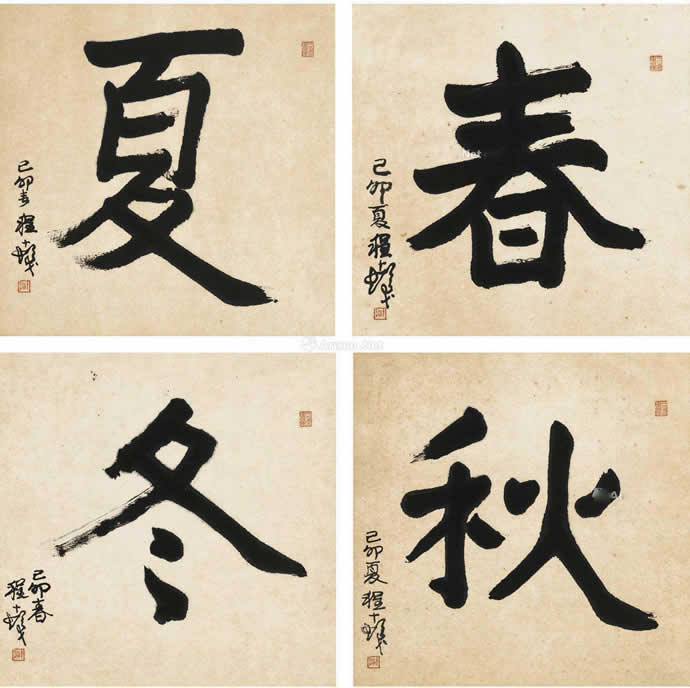 春
己卯夏程十髮
夏
己卯春程十髮
秋
己卯夏程十髮
冬
己卯春
程十髮
Artron.Net